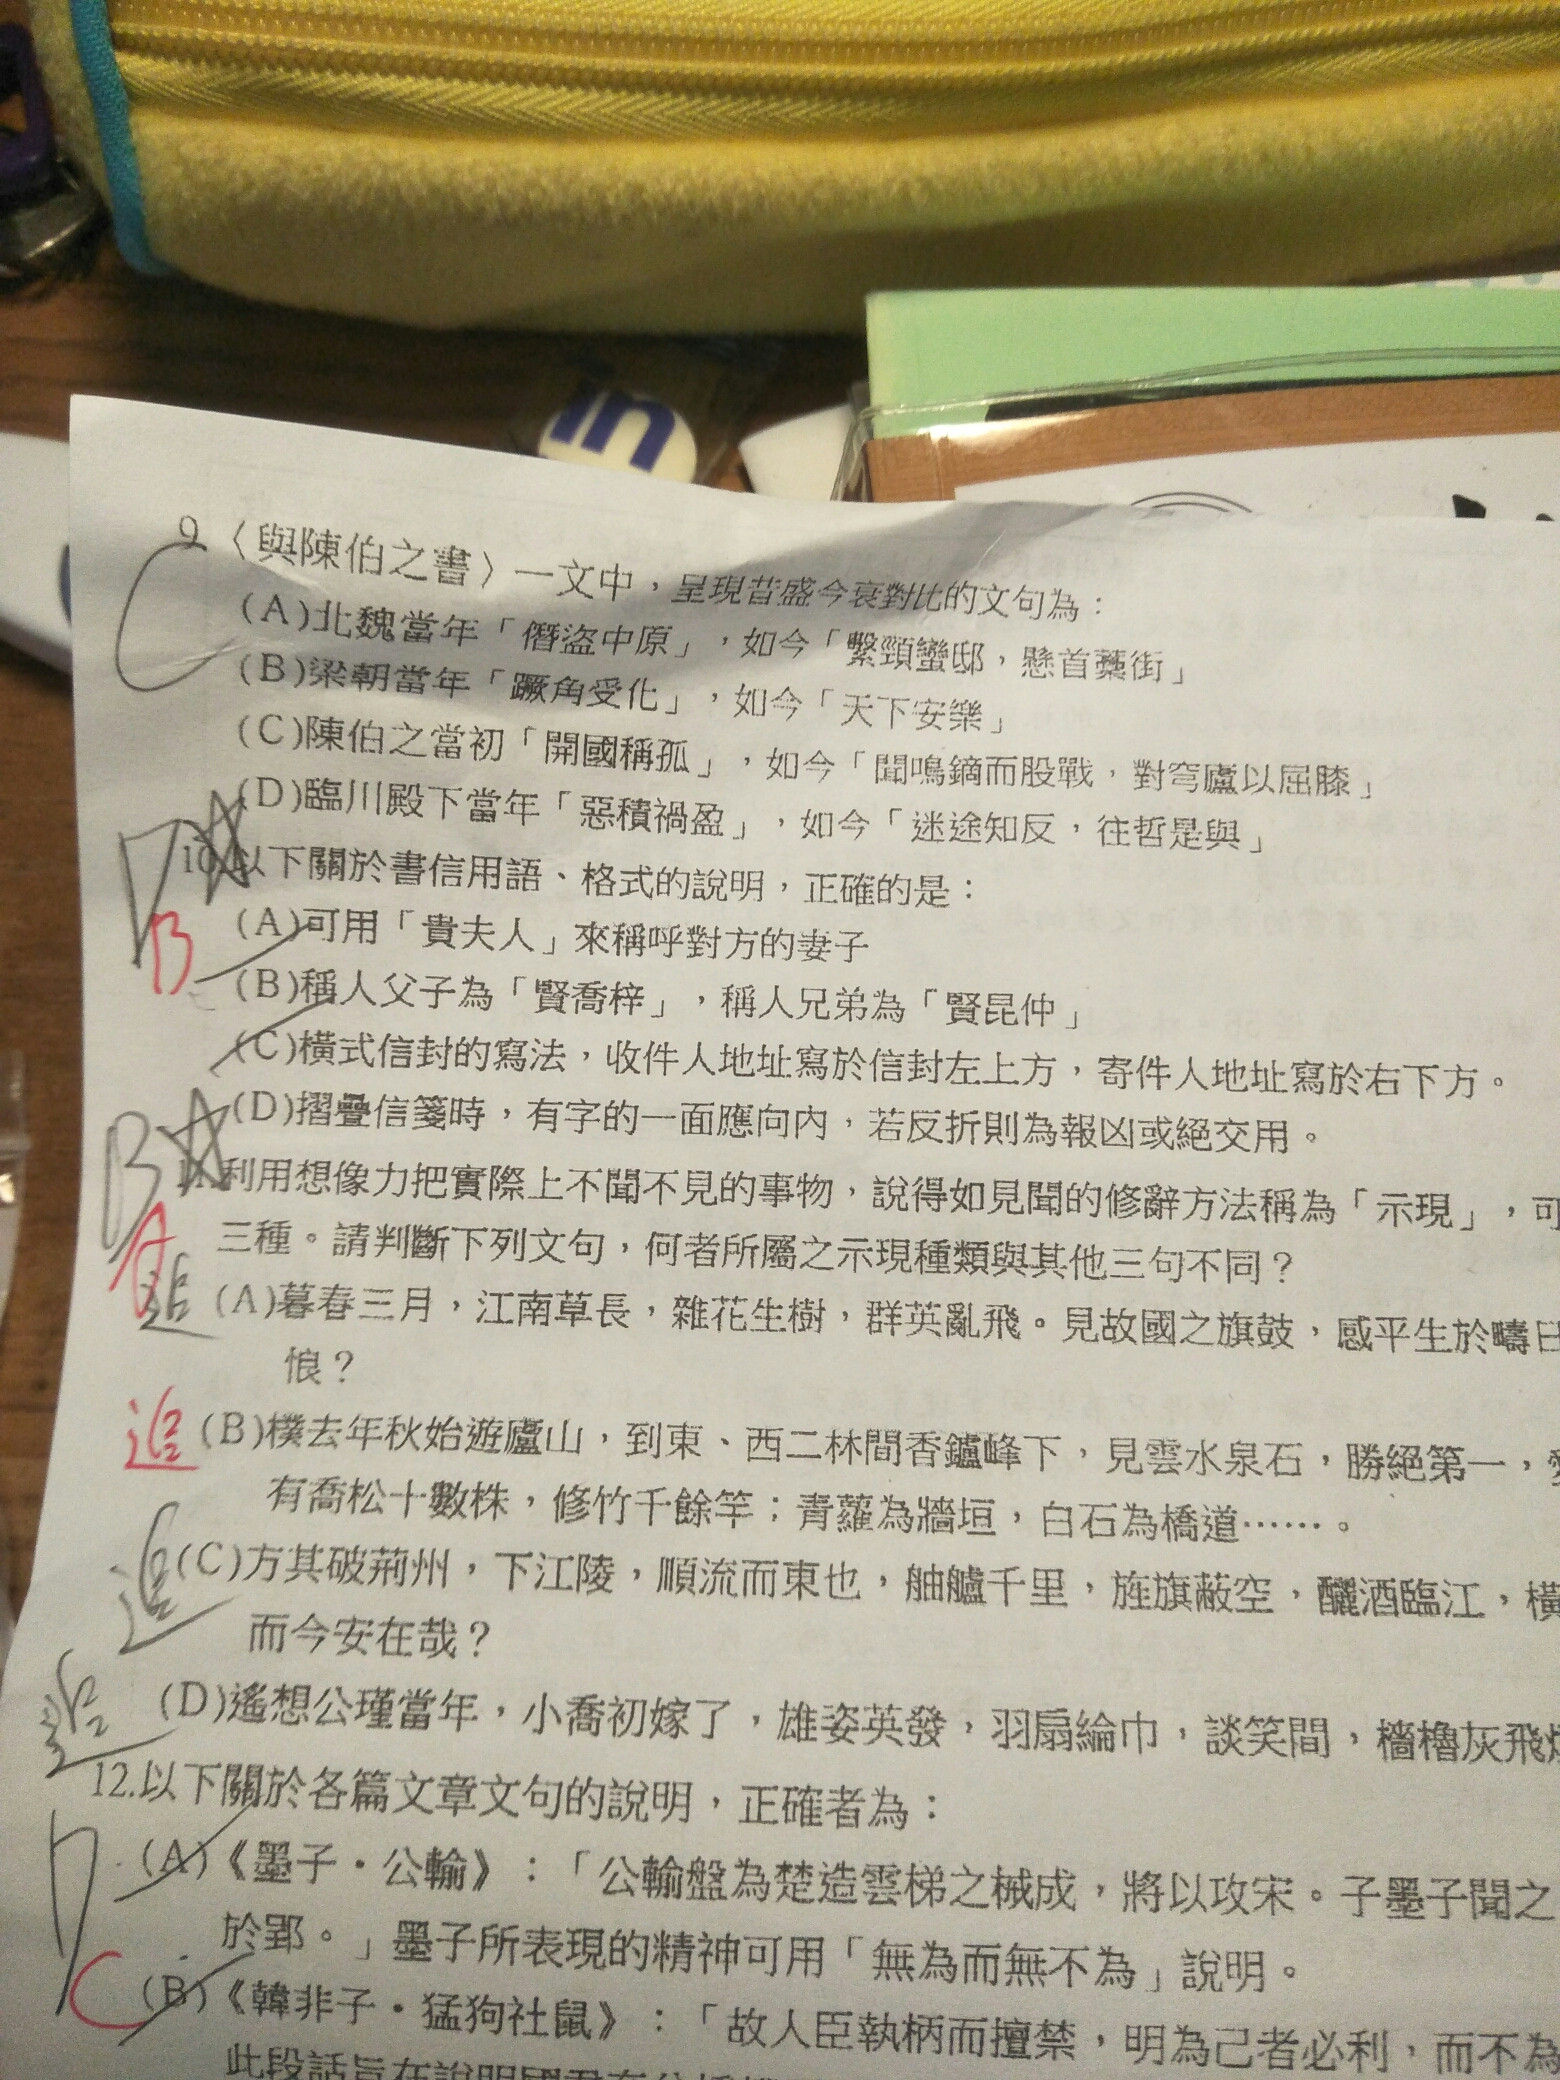 in
9.〈與陳伯之書〉一文中，呈現昔盛今衰對比的文句為：
C
(A)北魏當年「僭盜中原」，如今「繫頸蠻邸，懸首藁街」
(B)梁朝當年「蹶角受化」，如今「天下安樂」
(C)陳伯之當初「開國稱孤」，如今「聞鳴鏑而股戰，對穹廬以屈膝」
(D)臨川殿下當年「惡積禍盈」，如今「迷途知反，往哲是與」
10.以下關於書信用語、格式的說明，正確的是：
B
(A)可用「貴夫人」來稱呼對方的妻子
(B)稱人父子為「賢喬梓」，稱人兄弟為「賢昆仲」
(C)橫式信封的寫法，收件人地址寫於信封左上方，寄件人地址寫於右下方。
(D)摺疊信箋時，有字的一面應向內，若反折則為報凶或絕交用。
B
11.利用想像力把實際上不聞不見的事物，說得如見聞的修辭方法稱為「示現」，可
三種。請判斷下列文句，何者所屬之示現種類與其他三句不同？
A
追
(A)暮春三月，江南草長，雜花生樹，群英亂飛。見故國之旗鼓，感平生於疇日
悢？
追
(B)樸去年秋始遊廬山，到東、西二林間香鑪峰下，見雲水泉石，勝絕第一，愛
有喬松十數株，修竹千餘竿；青蘿為牆垣，白石為橋道……。
追
(C)方其破荊州，下江陵，順流而東也，舳艫千里，旌旗蔽空，釃酒臨江，橫
而今安在哉？
追
(D)遙想公瑾當年，小喬初嫁了，雄姿英發，羽扇綸巾，談笑間，檣櫓灰飛煙
12.以下關於各篇文章文句的說明，正確者為：
(A)《墨子·公輸》：「公輸盤為楚造雲梯之械成，將以攻宋。子墨子聞之
於郢。」墨子所表現的精神可用「無為而無不為」說明。
C
(B)《韓非子·猛狗社鼠》：「故人臣執柄而擅禁，明為己者必利，而不為
此段話旨在說明國君有